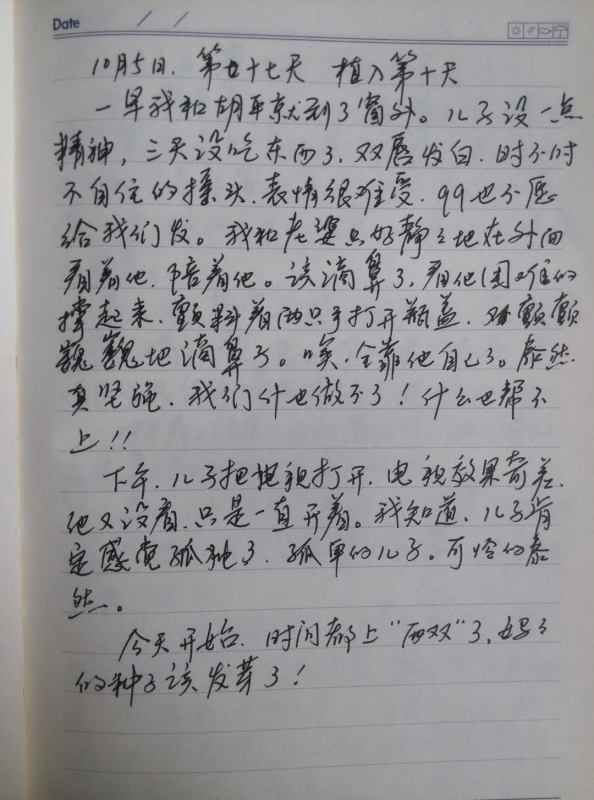 Date / /
10月5日. 第廿十七天 植入第十天
一早我和胡平就到了窗外。儿子没一点
精神, 三天没吃东西了. 双唇发白. 时不时
不自住的摇头. 表情很难受. qq也不愿
给我们发。我和老婆只好静々地在外面
看着他. 陪着他。该滴鼻了, 看他困难的
撑起来. 颤抖着两只手打开瓶盖. 又颤颤
巍巍地滴鼻子。唉. 全靠他自己了。泰然
真坚强. 我们什也做不了! 什么也帮不
上!!
下午. 儿子把电视打开. 电视效果奇差.
他又没看. 只是一直开着。我知道. 儿子肯
定感觉孤独了. 孤单的儿子。可怜的泰
然。
今天开始. 时间都上"两双"了, 妈々
的种子该发芽了!